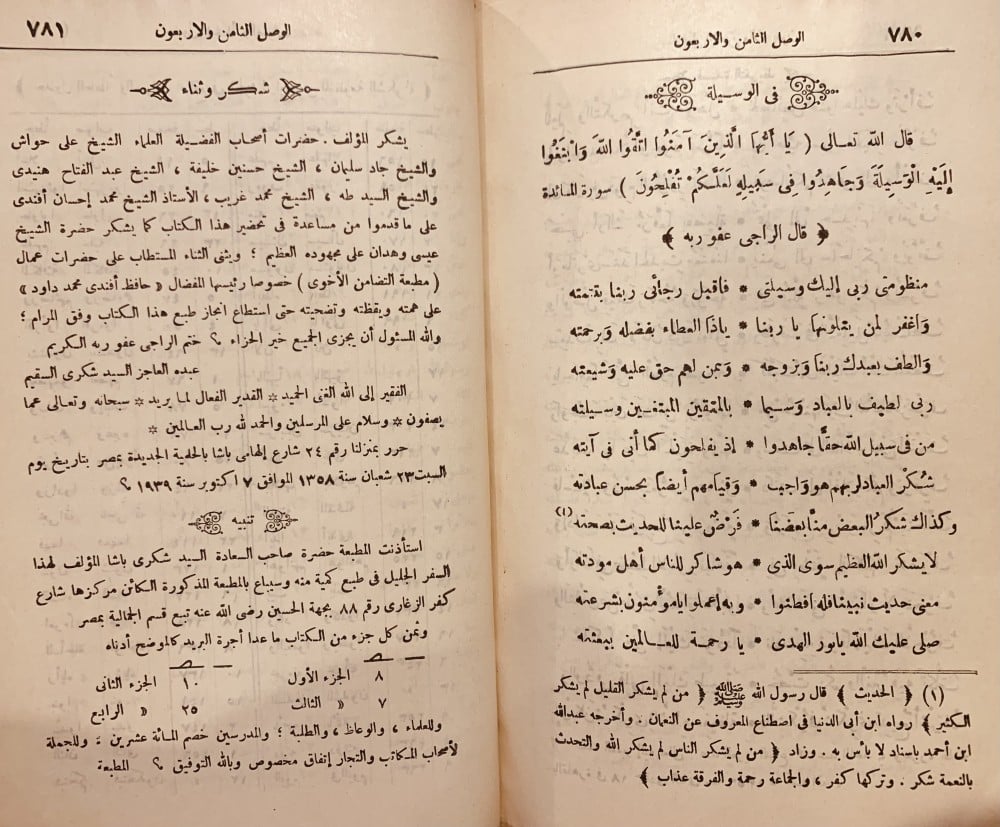 ٧٨٠ الوصل الثامن والاربعون
فى الوسيلة
قال الله تعالى ( يَا أَيُّهَا الَّذِينَ آمَنُوا اتَّقُوا اللهَ وَابْتَغُوا
إِلَيْهِ الْوَسِيلَةَ وَجَاهِدُوا فِى سَبِيلِهِ لَعَلَّكُمْ تُفْلِحُونَ ) سورة المائدة
﴿ قال الراجى عفو ربه ﴾
منظومتى ربى إليك وسيلتى * فاقبل رجائى ربنا بقتمته
وَاغفر لمن يتلونها يا ربنا * ياذا العطاء بفضله وَبرحمته
وَالطف بعبدك ربنا وَبزوجه * وَبمن لهم حق عليه وَشيعته
ربى لطيف بالعباد وَسيما * بالمتقين المبتغين وسيلته
من فى سبيل الله حقًا جاهدوا * إذ يفلحون كما أتى فى آيته
شكْر العباد لربهم هو واجب * وَقيامهم أيضًا بحسن عبادته
وكذاك شكرُ البعض منَّا بعضَنا * فَرْضٌ علينا للحديث بصحته (١)
لا يشكر الله العظيم سوى الذى * هو شاكر للناس أهل مودته
معنى حديث نبينا فله افطنوا * وبه إعملوا يا مؤمنون بشرعته
صلى عليك الله يانور الهدى * يا رحمة للعالمين ببعثته
(١) ﴿ الحديث ﴾ قال رسول الله ﷺ ﴿ من لم يشكر القليل لم يشكر
الكثير ﴾ رواه ابن أبى الدنيا فى اصطناع المعروف عن النعمان . وأخرجه عبدالله
ابن أحمد باسناد لا بأس به . وزاد ﴿ من لم يشكر الناس لم يشكر الله والتحدث
بالنعمة شكر . وتركها كفر ، والجماعة رحمة والفرقة عذاب ﴾
الوصل الثامن والاربعون ٧٨١
شكر وثناء
يشكر المؤلف . حضرات أصحاب الفضيلة العلماء الشيخ على حواش
والشيخ جاد سليمان ، الشيخ حسنين خليفة ، الشيخ عبد الفتاح هنيدى
والشيخ السيد طه ، الشيخ محمد غريب ، الأستاذ الشيخ محمد إحسان أفندى
على ما قدموا من مساعدة فى تحضير هذا الكتاب كما يشكر حضرة الشيخ
عيسى وهدان على مجهوده العظيم ؛ ويثنى الثناء المستطاب على حضرات عمال
( مطبعة التضامن الأخوى ) خصوصا رئيسها المفضال « حافظ أفندى محمد داود »
على همته ويقظته وتضحيته حتى استطاع انجاز طبع هذا الكتاب وفق المرام ؛
والله المسئول أن يجزى الجميع خير الجزاء ؟ ختم الراجى عفو ربه الكريم
عبده العاجز السيد شكرى السقيم
الفقير إلى الله الغنى الحميد * القدير الفعال لما يريد * سبحانه وتعالى عما
يصفون * وسلام على المرسلين والحمد لله رب العالمين *
حرر بمنزلنا رقم ٢٤ شارع إلهامى باشا بالحلمية الجديدة بمصر بتاريخ يوم
السبت ٢٣ شعبان سنة ١٣٥٨ الموافق ٧ اكتوبر سنة ١٩٣٩ ؟
تنبيه
استأذنت المطبعة حضرة صاحب السعادة السيد شكرى باشا المؤلف لهذا
السفر الجليل فى طبع كمية منه وسيباع بالمطبعة المذكورة الكائن مركزها شارع
كفر الزغارى رقم ٨٨ بجهة الحسين رضى الله عنه تبع قسم الجمالية بمصر
وثمن كل جزء من الكتاب ما عدا أجرة البريد كالموضح أدناه
صـ صـ
٨ الجزء الأول ١٠ الجزء الثانى
٧ » الثالث ٢٥ » الرابع
وللعلماء ، والوعاظ ، والطلبة ؛ والمدرسين خصم المائة عشرين ، وللجملة
لأصحاب المكاتب والتجار إتفاق مخصوص وبالله التوفيق ؟ المطبعة